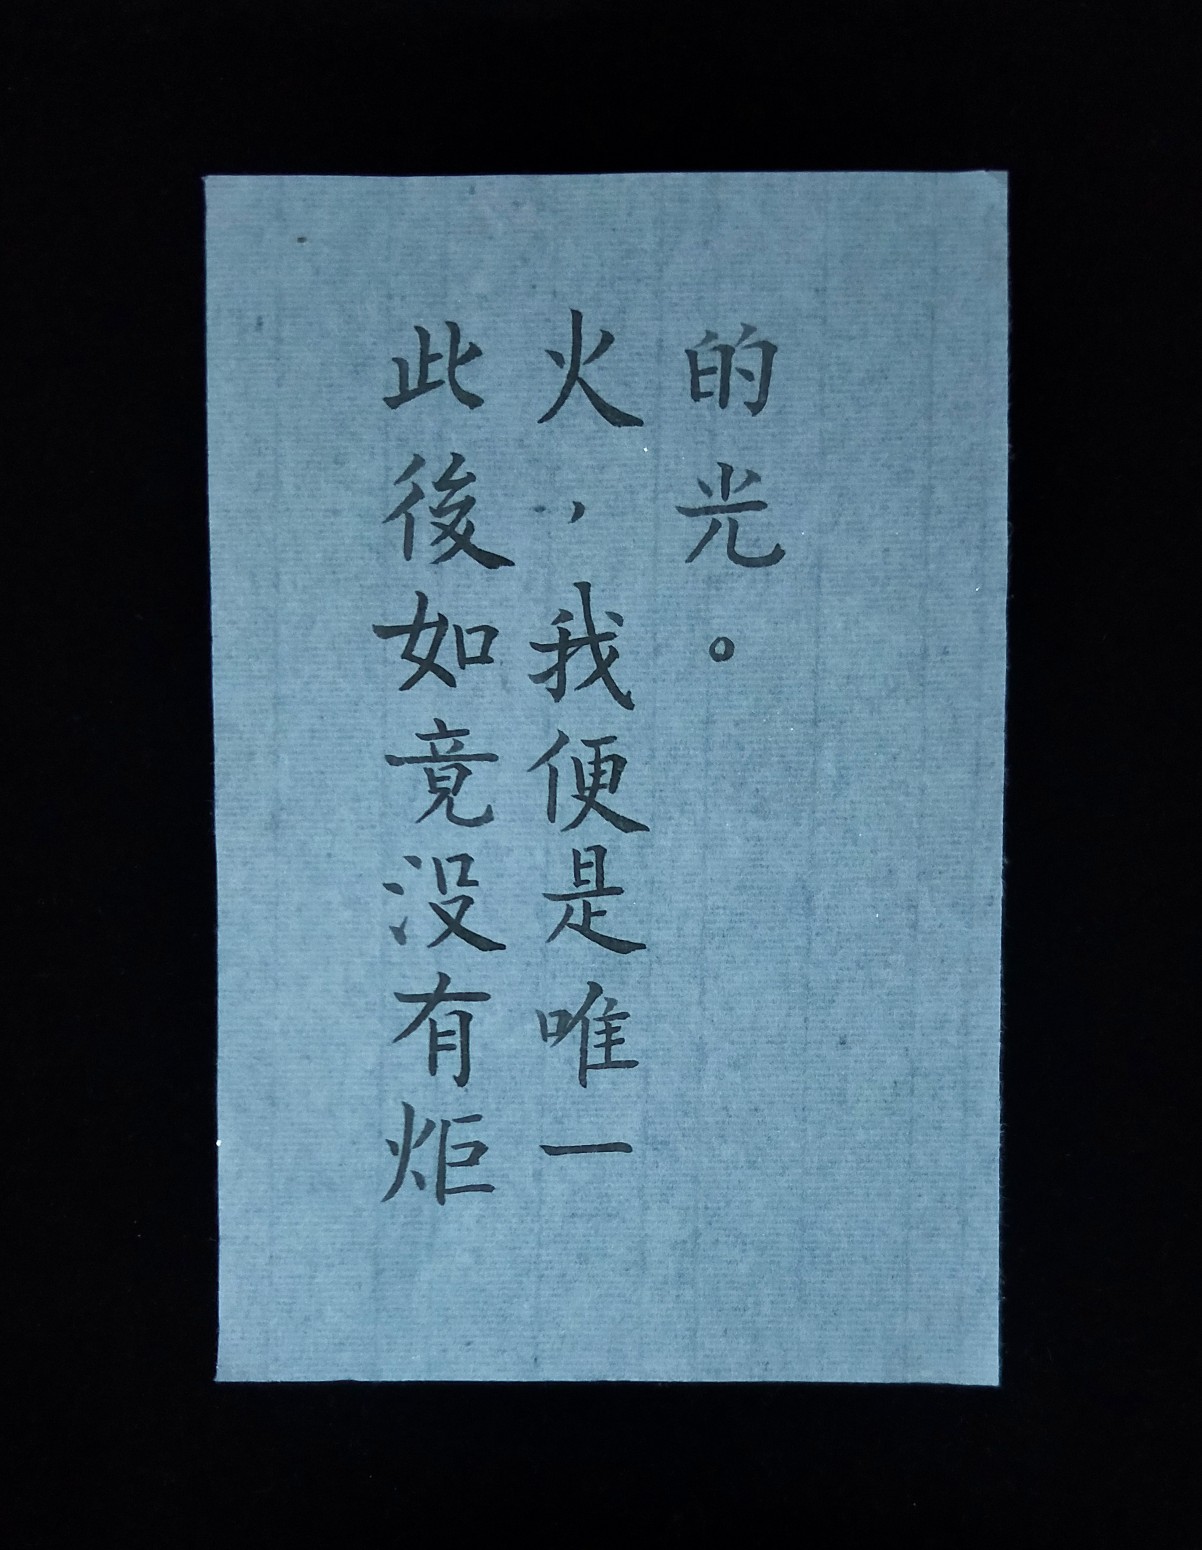 此後如竟没有炬
火，我便是唯一
的光。